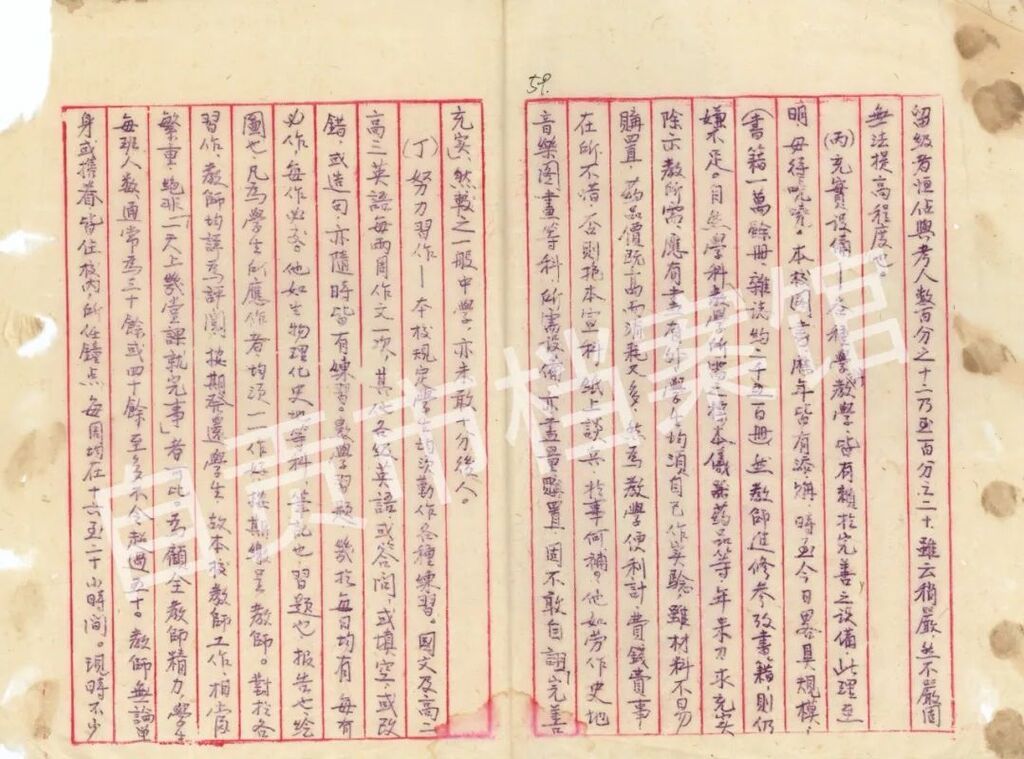 59.
留級者恒佔與考人數百分之十二乃至百分之二十。雖云稍嚴，然不嚴固
無法提高程度也。
(丙)充實設備——各種學科教學，皆有賴於完善之設備，此理至
明，毋待嘵嘵。本校圖書歷年皆有添購，時至今日，畧具規模，
(書籍一萬餘冊，雜誌約二千五百冊)然教師進修參攷書籍，則仍
嫌不足。自然學科教學所需之標本儀器藥品等，年來力求充实
除示教所需，應有盡有外，學生均須自己作实驗，雖材料不易
購置，藥品價既高而消耗又多，然為教學便利計，費錢費事
在所不惜，否則抱本宣科，紙上談兵，於事何補。他如劳作史地
音樂图畫等科，所需設備，亦盡量購置，固不敢自詡「完善
充实」，然較之一般中學，亦未敢十分後人。
(丁)努力習作——本校規定學生均次勤作各種練習。國文及高二
高三英語每兩周作文一次，其他各級英語或答问，或填空，或改
錯，或造句，亦隨時皆有練習。數學習題，幾於每日均有，每有
必作，每作必多。他如生物理化史地等科，筆記也，習題也，报告也，绘
圖也，凡為學生所應作者均须一一作好，按期繳呈教師。對於各
習作，教師均認為評閱，按期發還學生，故本校教師工作，相當
繁重，絕非「一天上幾堂課就完事」者可比。為顧全教師精力，學生
每班人数通常為三十餘或四十餘，至多不令超過五十。教師無論單
身或攜眷，皆住校內，所任鐘点，每周均在十六至二十小時間。現時不少
自贡市档案馆